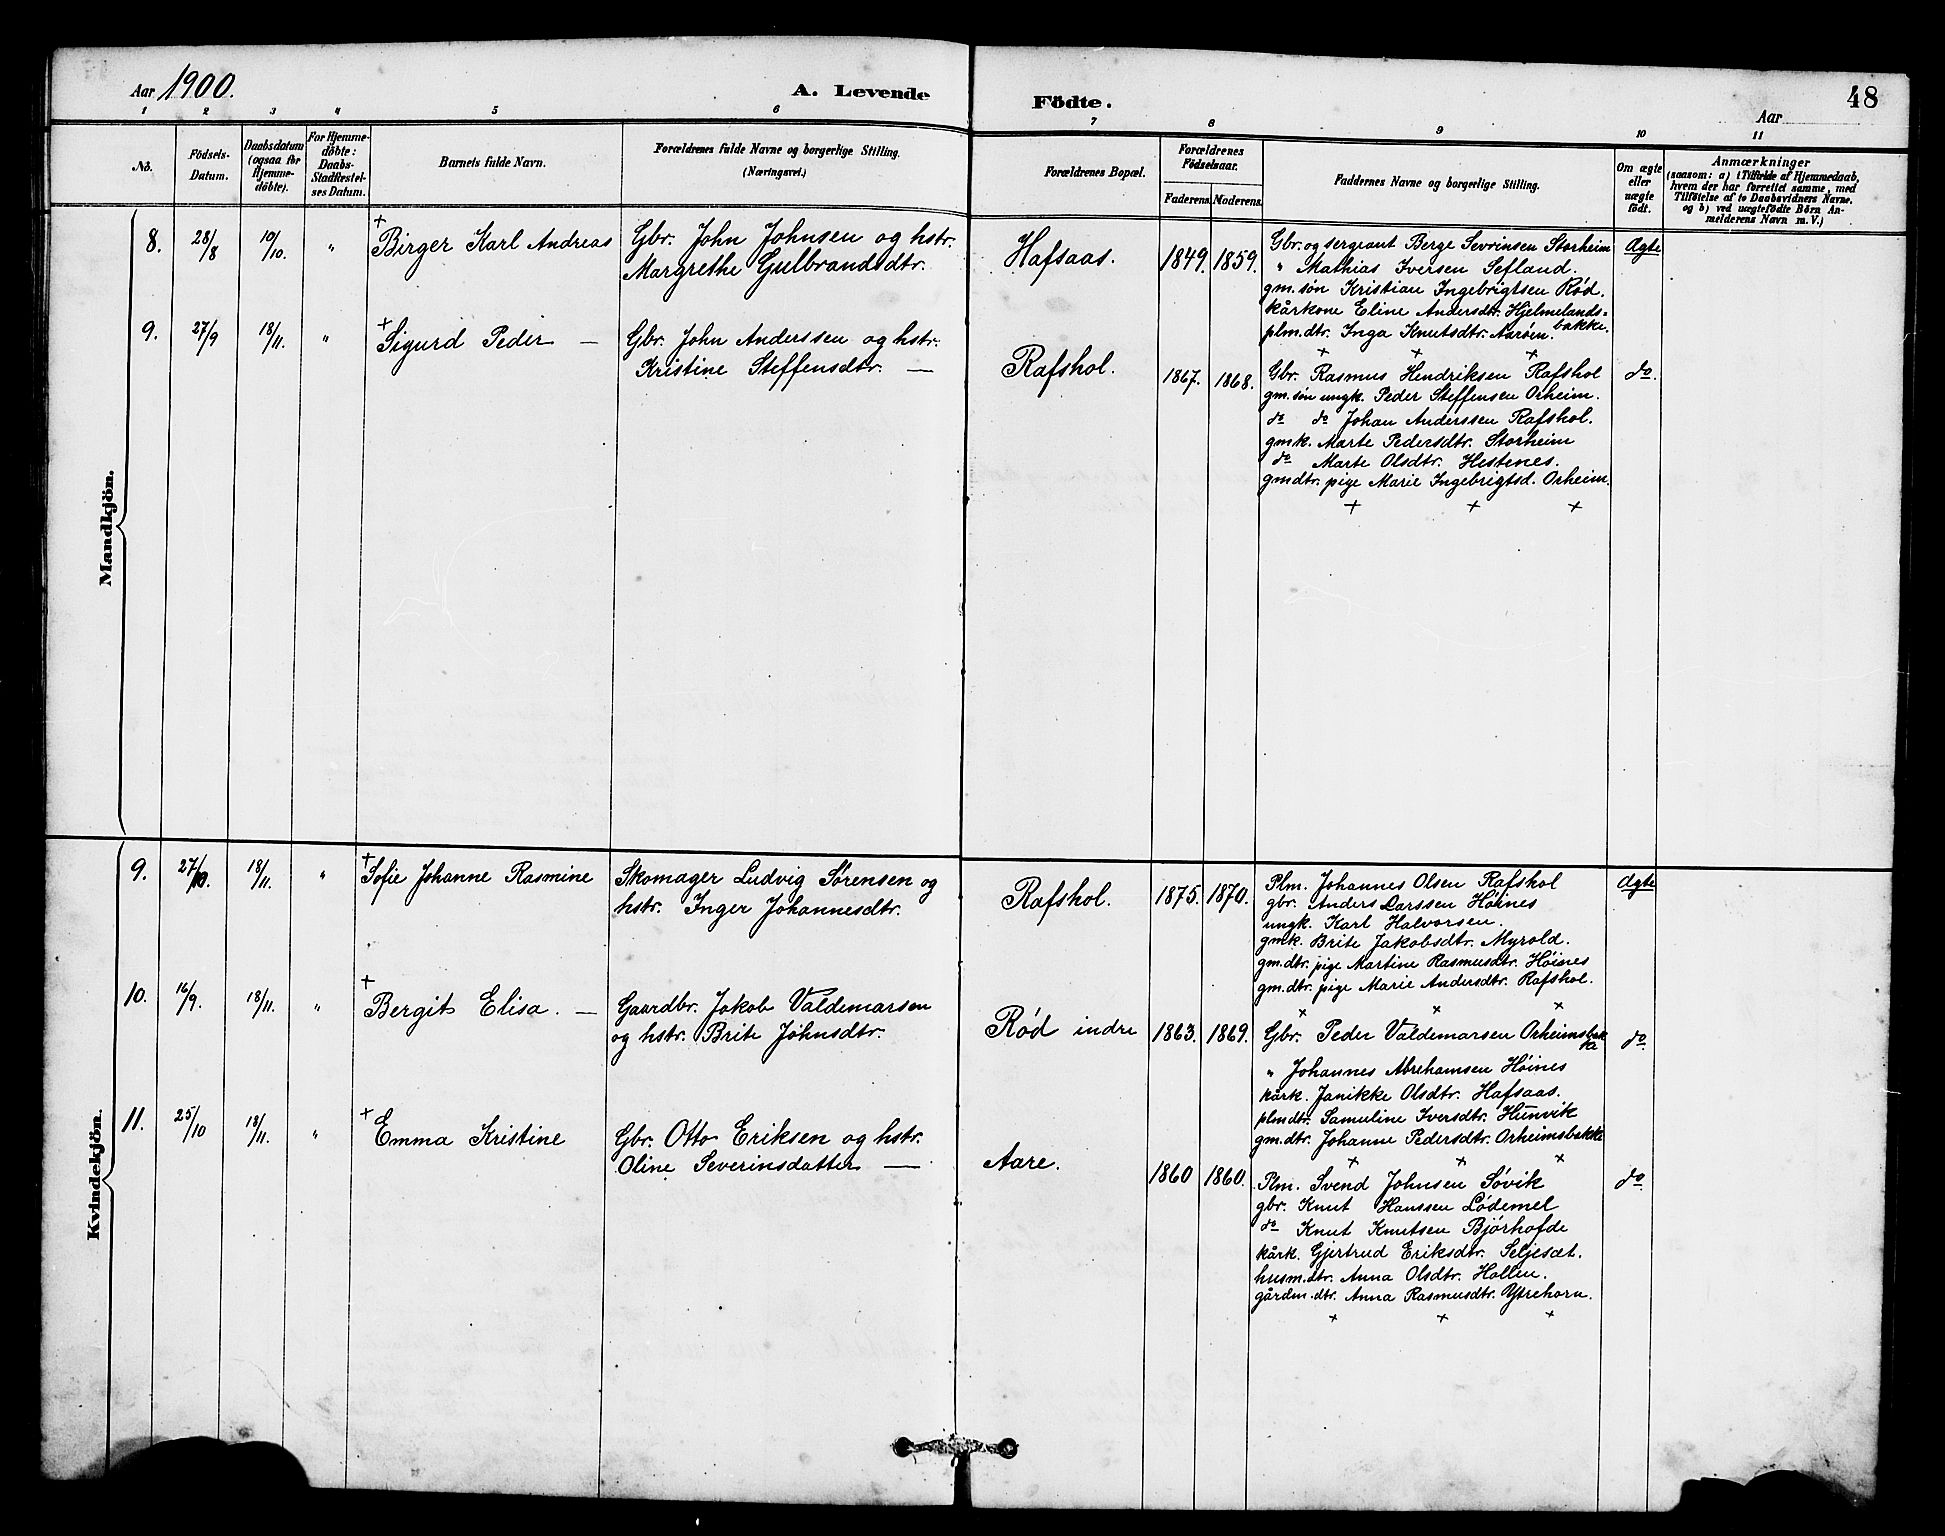 Aar 1900.
A. Levende
Födte.
Aar
48
1 2 3 4 5 6 7 8 9 10 11
No.
Födsels-
Datum.
Daabsdatum
(ogsaa for
Hjemme-
döbte).
For Hjemme-
döbte:
Daabs-
Stadfæstel-
ses Datum.
Barnets fulde Navn.
Forældrenes fulde Navne og borgerlige Stilling.
(Næringsvei.)
Forældrenes Bopæl.
Forældrenes
Födselsaar.
Faderens. Moderens.
Faddernes Navne og borgerlige Stilling.
Om ægte
eller
uægte
födt.
Anmærkninger
(saasom: a) i Tilfælde af Hjemmedaab,
hvem der har forrettet samme, med
Tilföielse af to Daabsvidners Navne.
og b) ved uægtefödte Börn An-
melderens Navn m. V.)
Mandkjön.
8. 28/8 10/10. " + Birger Karl Andreas
Gbr. John Johnsen og hstr.
Margrethe Gulbrandsdtr.
Hafsaas. 1849. 1859.
Gbr. og sergeant Berge Sevrinsen Storheim
" Mathias Iversen Sefland.
gm. søn Kristian Ingebrigtsen Rød.
kårkone Eline Andersdtr. Hjelmelands-
bakke.
plm. dtr. Inga Knutsdtr. Aarøen.
+ + +
Ægte
9. 27/9 18/11. " + Sigurd Peder —
Gbr. John Anderssen og hstr.
Kristine Steffensdtr. —
Rafshol. 1867. 1868.
Gbr. Rasmus Hendriksen Rafshol
gm. søn ungk. Peder Steffensen Orheim.
do do Johan Anderssen Rafshol.
gmk. Marte Pedersdtr. Storheim
do Marte Olsdtr. Hestenes.
gmdtr. pige Marie Ingebrigtsd. Orheim.
+ + +
do.
Kvindekjön.
9. 27/10. 18/11. " + Sofie Johanne Rasmine
Skomager Ludvig Sørensen og
hstr. Inger Johannesdtr.
Rafshol. 1875. 1870.
Plm. Johannes Olsen Rafshol
gbr. Anders Larssen Høines
ungk. Karl Halvorsen.
gmk. Brite Jakobsdtr. Myrold.
gm. dtr. pige Martine Rasmusdtr. Høines
gm. dtr. pige Marie Andersdtr. Rafshol.
× × ×
Ægte
10. 16/9. 18/11. " + Bergit Elisa. —
Gaardbr. Jakob Valdemarsen
og hstr. Brite Johnsdtr.
Rød indre 1863. 1869.
Gbr. Peder Valdemarsen Orheimsbakka
" Johannes Abrehamsen Høines
kårk. Janikke Olsdtr. Hafsaas.
plmdtr. Samuline Iversdtr. Hunvik
gm. dtr. Johanne Pedersdtr. Orheimsbakke
× × ×
do.
11. 25/10 18/11. " + Emma Kristine
Gbr. Otto Eriksen og hstr.
Oline Severinsdatter —
Aare. 1860 1860.
Plm. Svend Johnsen Søvik
gbr. Knut Hanssen Lødemel
do Knut Knutsen Bjørhofde
kårk. Gjertrud Eriksdtr. Seljesæt.
husm. dtr. Anna Olsdtr. Hollen.
gårdm. dtr. Anna Rasmusdtr. Ytrehorn.
× × ×
do.